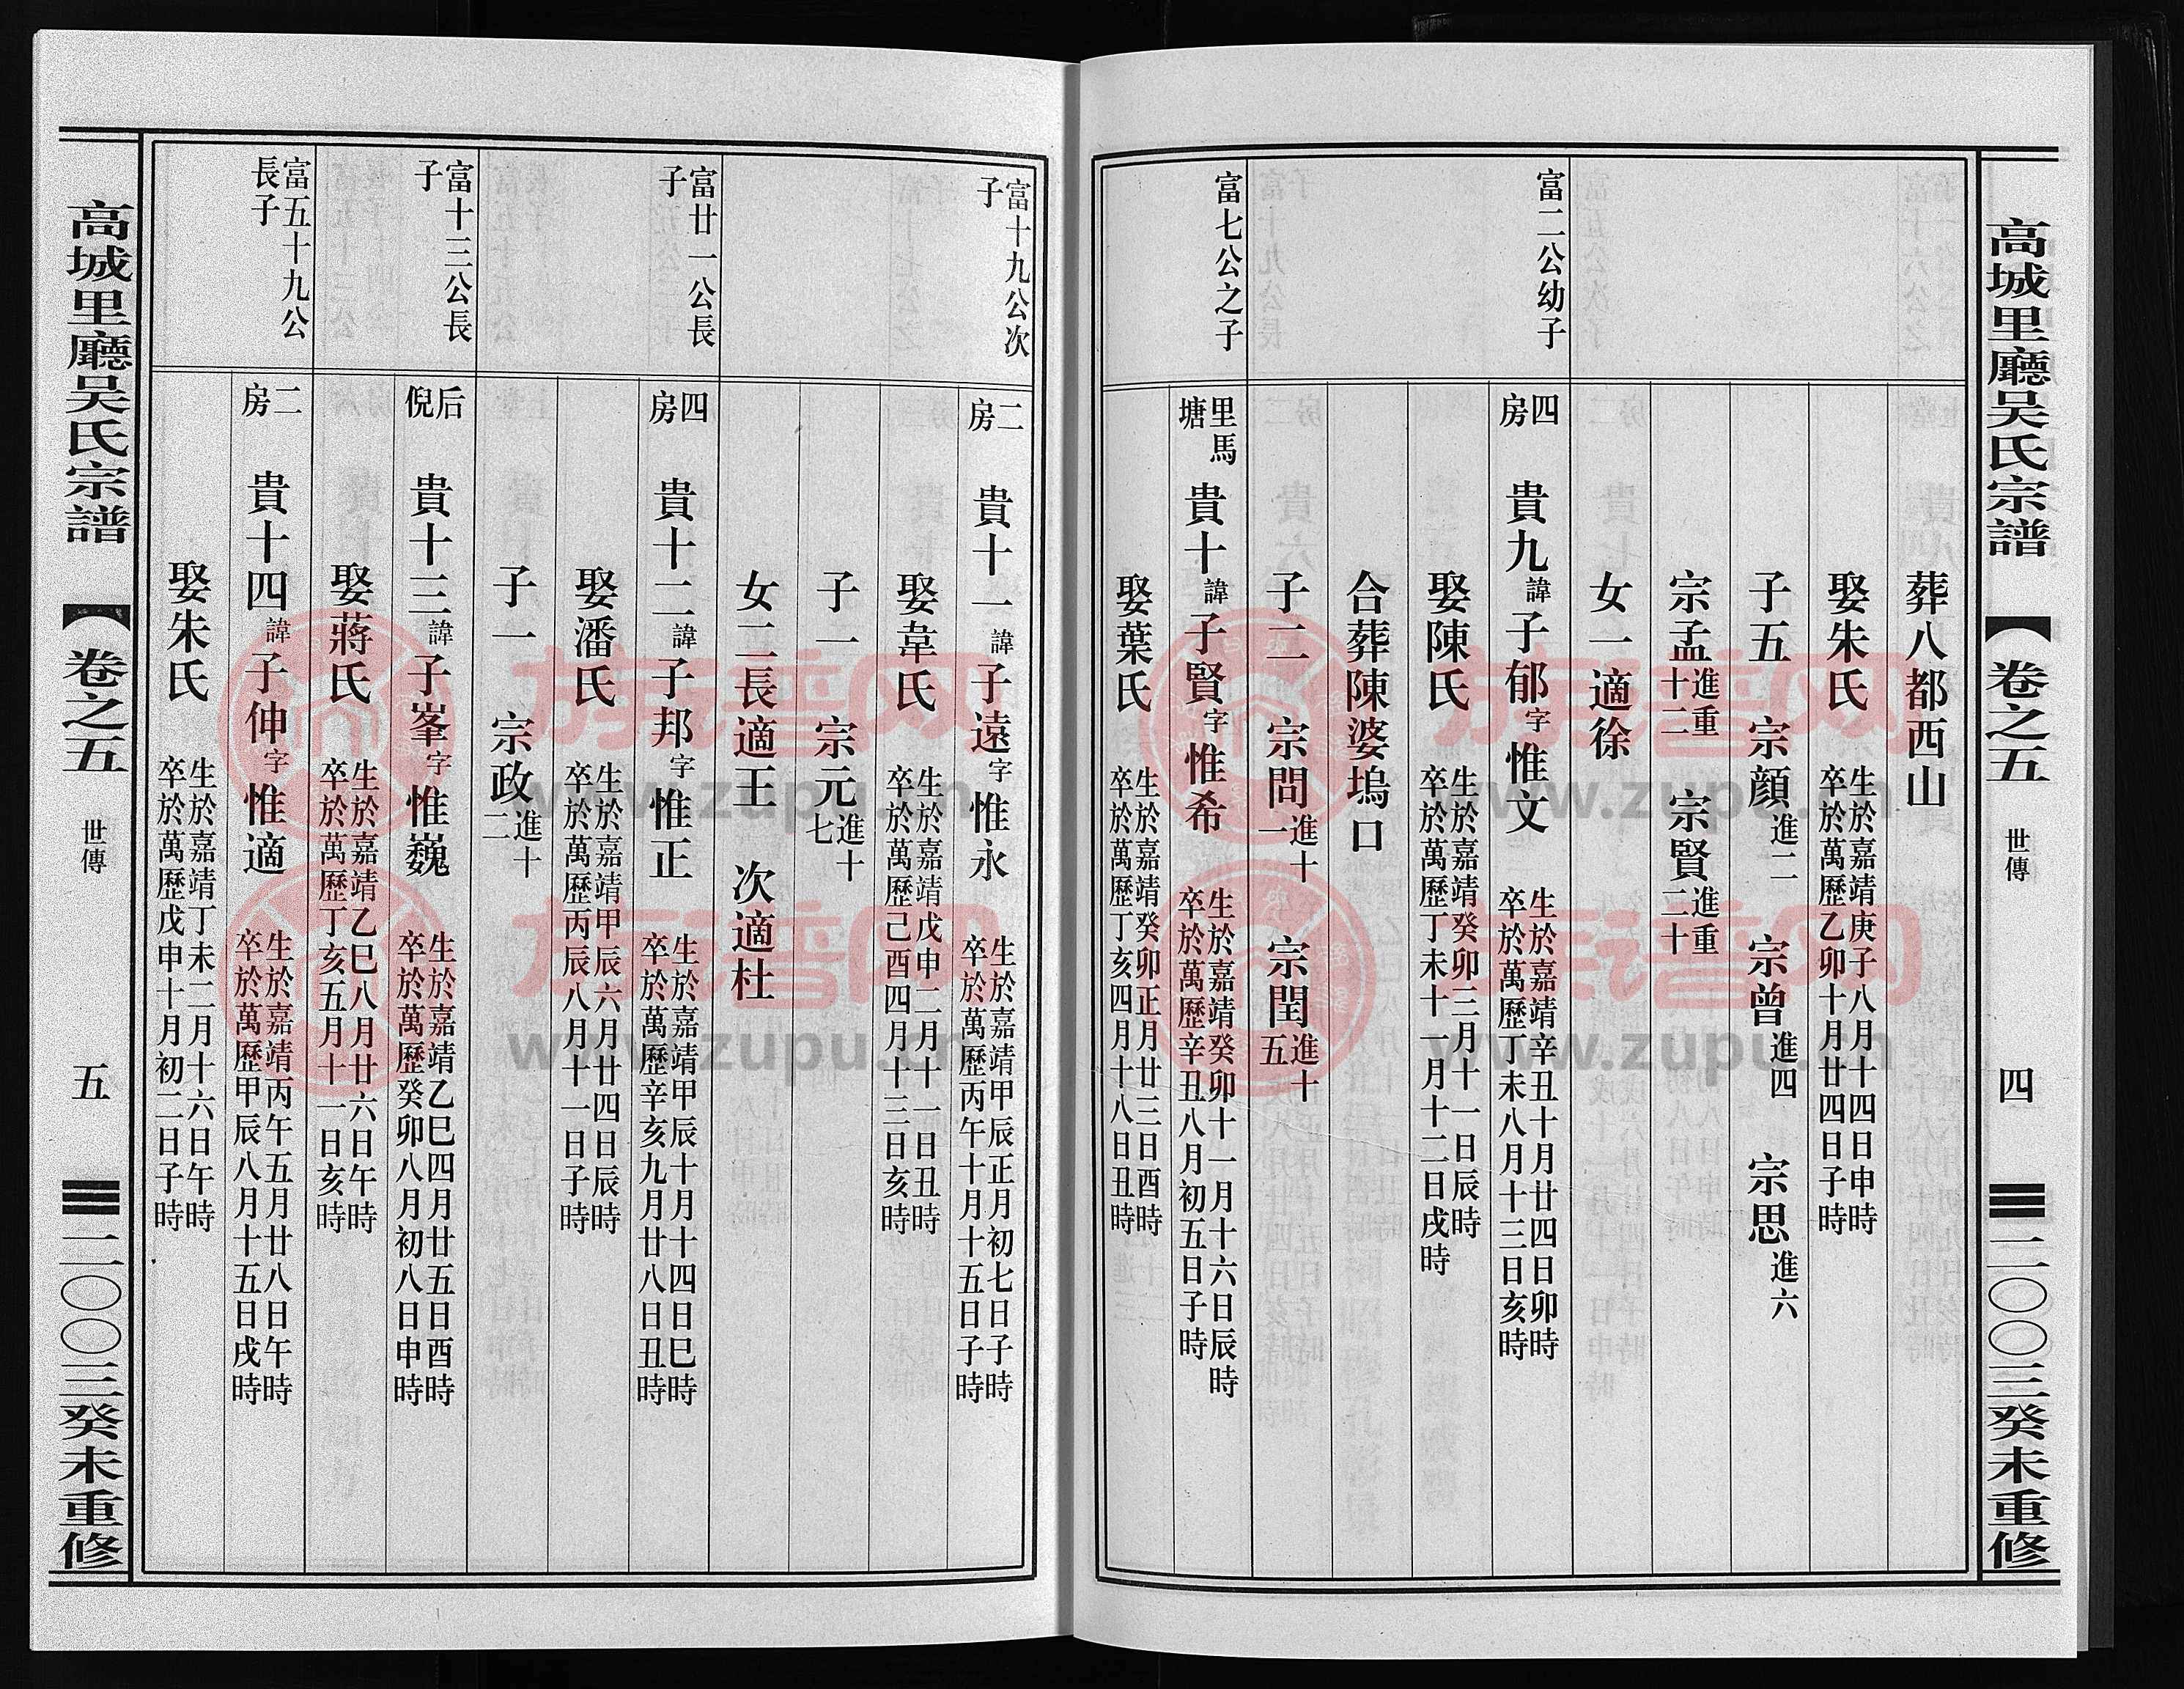 高城里廳吴氏宗譜
卷之五
世傳
四
二〇〇三癸未重修
葬八都西山
娶朱氏
生於嘉靖庚子八月十四日申時
卒於萬歷乙卯十月廿四日子時
子五 宗顏進二 宗曾進四 宗思進六
宗孟進重十二 宗賢進重二十
女一適徐
富二公幼子
四房
貴九諱子郁字惟文
生於嘉靖辛丑十月廿四日卯時
卒於萬歷丁未八月十三日亥時
娶陳氏
生於嘉靖癸卯三月十一日辰時
卒於萬歷丁未十一月十二日戌時
合葬陳婆塢口
子二 宗問進十一 宗閏進十五
富七公之子
里馬塘
貴十諱子賢字惟希
生於嘉靖癸卯十一月十六日辰時
卒於萬歷辛丑八月初五日子時
娶葉氏
生於嘉靖癸卯正月廿三日酉時
卒於萬歷丁亥四月十八日丑時
富十九公次子
二房
貴十一諱子遠字惟永
生於嘉靖甲辰正月初七日子時
卒於萬歷丙午十月十五日子時
娶韋氏
生於嘉靖戊申二月十一日丑時
卒於萬歷己酉四月十三日亥時
子一 宗元進十七
女二長適王 次適杜
富廿一公長子
四房
貴十二諱子邦字惟正
生於嘉靖甲辰十月十四日巳時
卒於萬歷辛亥九月廿八日丑時
娶潘氏
生於嘉靖甲辰六月廿四日辰時
卒於萬歷丙辰八月十一日子時
子一 宗政進十二
富十三公長子
后倪
貴十三諱子峯字惟巍
生於嘉靖乙巳四月廿五日酉時
卒於萬歷癸卯八月初八日申時
娶蔣氏
生於嘉靖乙巳八月廿六日午時
卒於萬歷丁亥五月十一日亥時
富五十九公長子
二房
貴十四諱子伸字惟適
生於嘉靖丙午五月廿八日午時
卒於萬歷甲辰八月十五日戌時
娶朱氏
生於嘉靖丁未二月十六日午時
卒於萬歷戊申十月初二日子時
高城里廳吴氏宗譜
卷之五
世傳
五
二〇〇三癸未重修
族谱网
www.zupu.cn
族谱网
www.zupu.cn
族谱网
www.zupu.cn
族谱网
www.zupu.cn